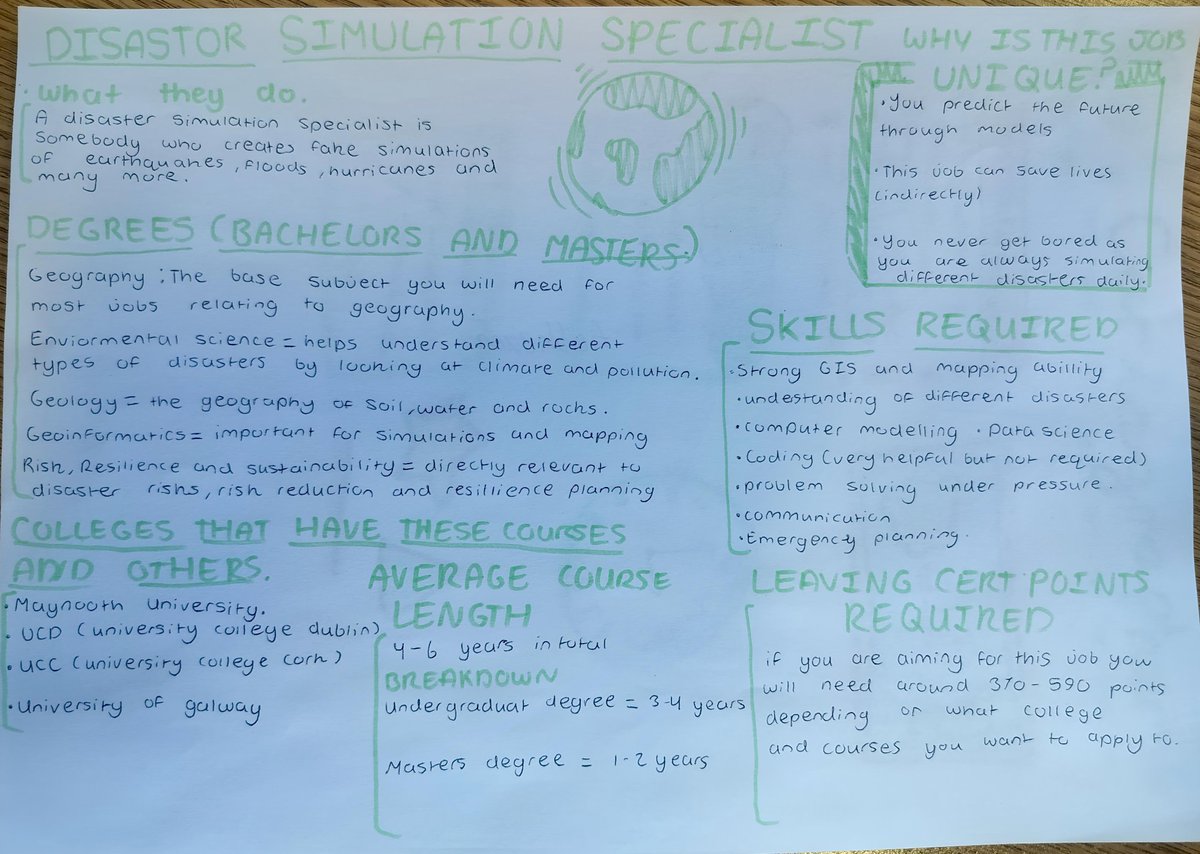 DISASTOR SIMULATION SPECIALIST
• What they do.
A disaster simulation specialist is
somebody who creates fake simulations
of earthquakes, floods, hurricanes and
many more.
WHY IS THIS JOB
UNIQUE?
• You predict the future
through models
• This job can save lives
(indirectly)
• You never get bored as
you are always simulating
different disasters daily.
DEGREES (BACHELORS AND MASTERS.)
Geography : The base subject you will need for
most jobs relating to geography.
Enviormental science = helps understand different
types of disasters by looking at climate and pollution.
Geology = the geography of soil, water and rocks.
Geoinformatics = important for simulations and mapping
Risk, Resilience and sustainability = directly relevant to
disaster risks, risk reduction and resillience planning
SKILLS REQUIRED
• Strong GIS and mapping abillity
• undestanding of different disasters
• computer modelling • Data science
• Coding (very helpful but not required)
• problem solving under pressure.
• communication
• Emergency planning.
COLLEGES THAT HAVE THESE COURSES
AND OTHERS.
• Maynooth University.
• UCD (university college dublin)
• UCC (university college cork)
• University of galway
AVERAGE COURSE
LENGTH
4-6 years in total
BREAKDOWN
undergraduat degree = 3-4 years
Masters degree = 1-2 years
LEAVING CERT POINTS
REQUIRED
if you are aiming for this job you
will need around 370-590 points
depending on what college
and courses you want to apply to.